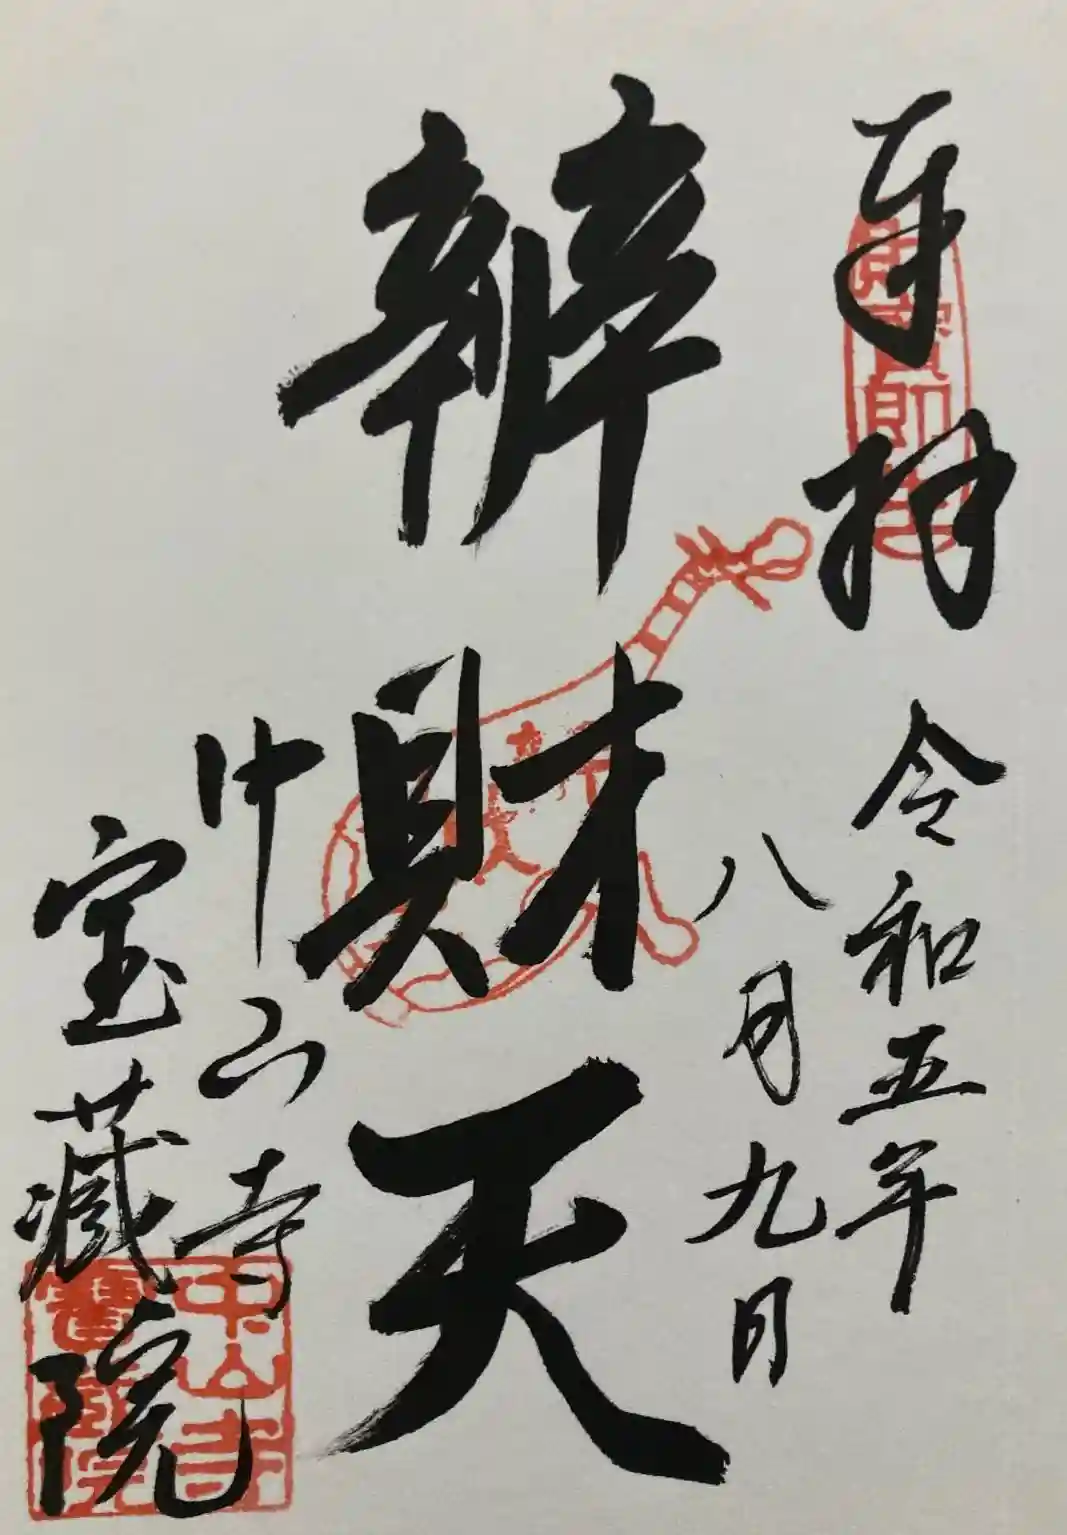 奉拝
令和五年
八月九日
辨財天
中山寺
宝蔵院
中山寺
寶蔵院